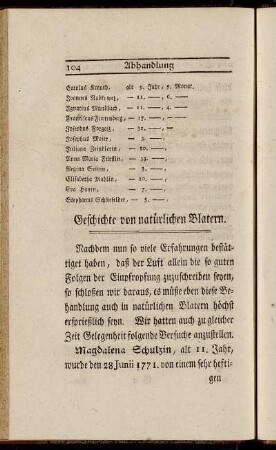 104 Abhandlung
Carolus Kreuth, alt 9. Jahr, 5. Monat.
Joannes — 11. —, 6. —
Ignatius — 11. —, 4. —
Franciscus — 17. —, —
Josephus — 32. —, —
Josephus Maier, — 2. —,
Juliana — 10. —,
Anna Maria Fürstin, — 13. —
Regina — 3. —,
Elisabetha — 10. —,
Eva — 7. —,
Stephanus — 5. —,
Geschichte von natürlichen Blatern.
Nachdem nun so viele Erfahrungen bestät-
tiget haben, daß der Luft allein die so guten
Folgen der Einpfropfung zuzuschreiben seyen,
so schloßen wir daraus, es müßte eben diese Be-
handlung auch in natürlichen Blatern höchst
ersprießlich seyn. Wir hatten auch zu gleicher
Zeit Gelegenheit folgende Versuche anzustellen.
Magdalena Schulzin, alt 11. Jahr,
wurde den 28. Junii 1771. von einem sehr hefti-
gen